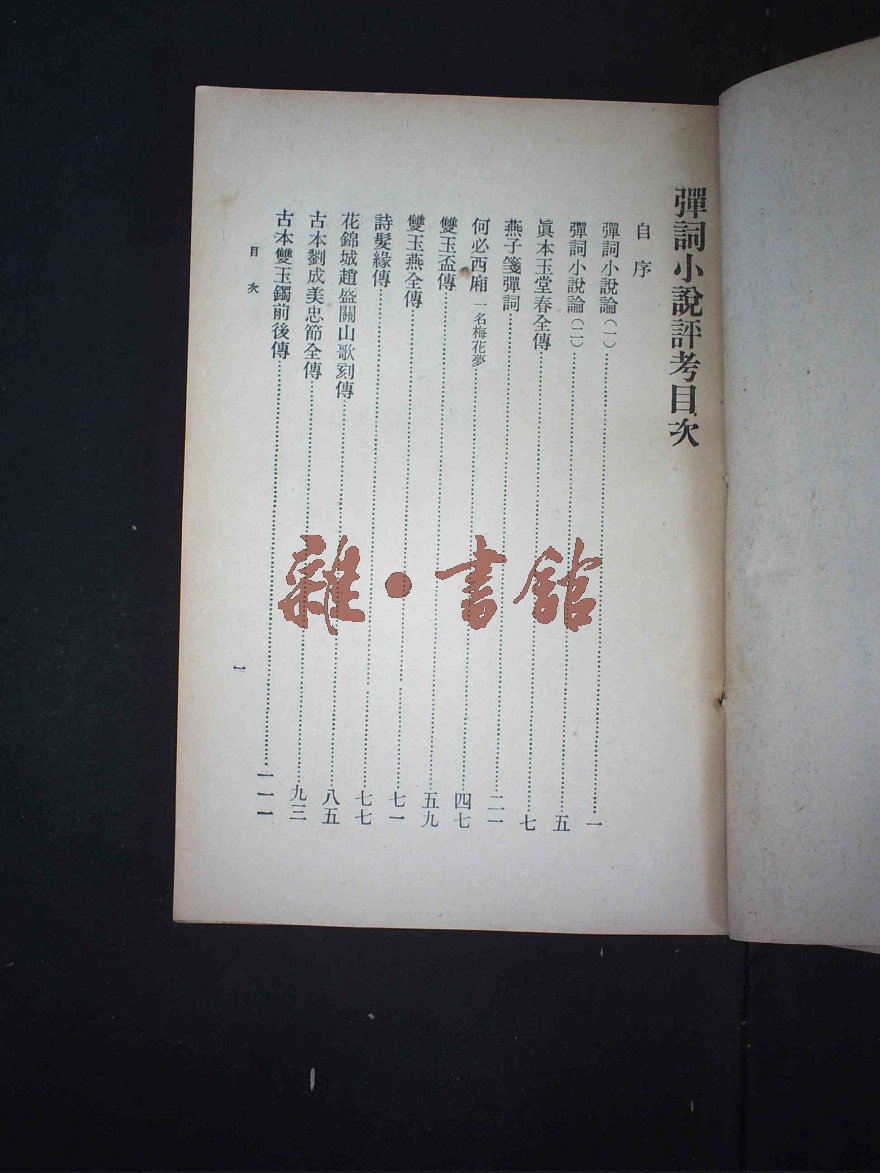 彈詞小說評考目次
自序
彈詞小說論（一）……一
彈詞小說論（二）……五
眞本玉堂春全傳……七
燕子箋彈詞……二一
何必西廂 一名梅花夢……四七
雙玉盃傳……五九
雙玉燕全傳……七一
詩髮緣傳……七七
花錦城趙盛關山歌刻傳……八五
古本劉成美忠節全傳……九三
古本雙玉鐲前後傳……一一一
目次
一
雜·書館